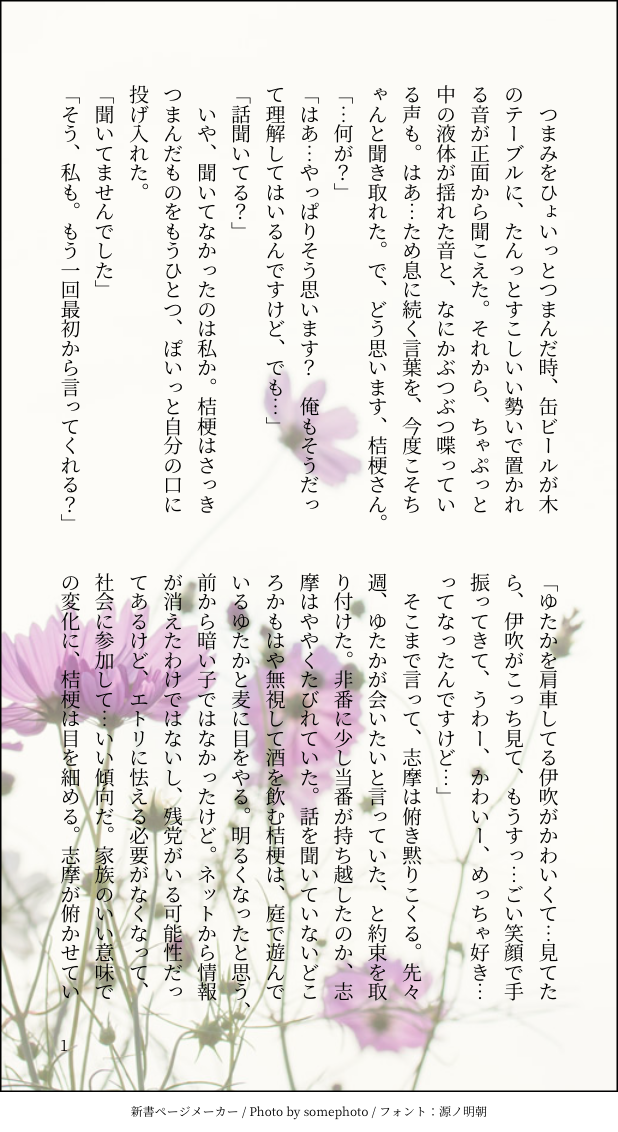 つまみをひょいっとつまんだ時、缶ビールが木
のテーブルに、たんっとすこしいい勢いで置かれ
る音が正面から聞こえた。それから、ちゃぷっと
中の液体が揺れた音と、なにかぶつぶつ喋ってい
る声も。はあ…ため息に続く言葉を、今度こそち
ゃんと聞き取れた。で、どう思います、桔梗さん。
「…何が？」
「はあ…やっぱりそう思います？　俺もそうだっ
て理解してはいるんですけど、でも…」
「話聞いてる？」
　いや、聞いてなかったのは私か。桔梗はさっき
つまんだものをもうひとつ、ぽいっと自分の口に
投げ入れた。
「聞いてませんでした」
「そう、私も。もう一回最初から言ってくれる？」
「ゆたかを肩車してる伊吹がかわいくて…見てた
ら、伊吹がこっち見て、もうすっ…ごい笑顔で手
振ってきて、うわー、かわいー、めっちゃ好き…
ってなったんですけど…」
　そこまで言って、志摩は俯き黙りこくる。先々
週、ゆたかが会いたいと言っていた、と約束を取
り付けた。非番に少し当番が持ち越したのか、志
摩はややくたびれていた。話を聞いていないどこ
ろかもはや無視して酒を飲む桔梗は、庭で遊んで
いるゆたかと麦に目をやる。明るくなったと思う、
前から暗い子ではなかったけど。ネットから情報
が消えたわけではないし、残党がいる可能性だっ
てあるけど、エトリに怯える必要がなくなって、
社会に参加して…いい傾向だ。家族のいい意味で
の変化に、桔梗は目を細める。志摩が俯かせてい
1
新書ページメーカー / Photo by somephoto / フォント：源ノ明朝